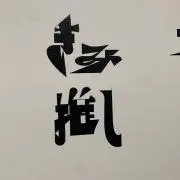 きみ
推し